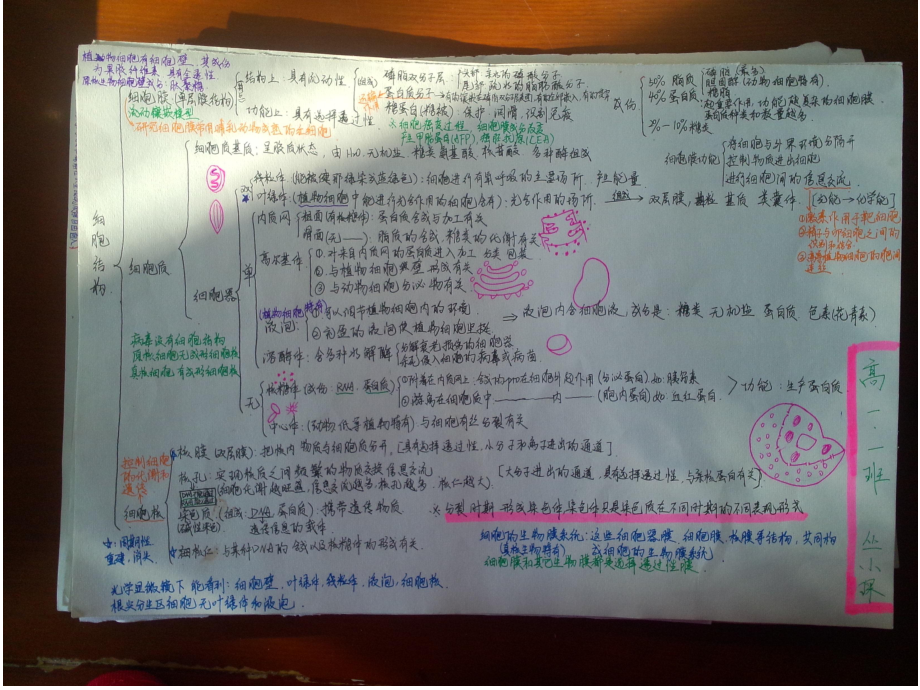 植物细胞有细胞壁，其成份
为果胶纤维素，具有全透性
原核生物细胞壁成分：肽聚糖
细胞膜（单层膜结构）
流动镶嵌模型
结构上：具有流动性
功能上：具有选择透过性
组成
磷脂双分子层
头部：亲水的磷酸分子
尾部：疏水的脂肪酸分子
蛋白质分子
糖蛋白（糖被）：保护 润滑，识别免疫
※细胞癌变过程，细胞膜成分改变
产生甲胎蛋白(AFP)，癌胚抗原(CEA)
成份
50% 脂质
磷脂（最多）
胆固醇（动物细胞特有）
糖脂
40% 蛋白质
起重要作用，功能越复杂的细胞膜，
蛋白质种类和数量越多
2%—10%糖类
*研究细胞膜常用哺乳动物成熟的红细胞
细胞膜功能
将细胞与外界环境分隔开
控制物质进出细胞
进行细胞间的信息交流
①激素作用于靶细胞
②精子与卵细胞之间的
识别和结合
③高等植物细胞的胞间
连丝
细胞结构
细胞质
细胞质基质：呈胶质状态，由H₂O、无机盐、糖类氨基酸、核苷酸、各种酶组成
细胞器
双
线粒体（能被健那绿染成蓝绿色）：细胞进行有氧呼吸的主要场所，产能量
叶绿体（植物细胞中能进行光合作用的细胞含有）：光合作用的场所
组成 双层膜，基粒 基质 类囊体 [光能→化学能]
单
内质网
粗面（有核糖体）：蛋白质合成与加工有关
滑面（无——）：脂质的合成，糖类的代谢有关
高尔基体
①对来自内质网的蛋白质进入加工 分类 包装
②与植物细胞壁形成有关
③与动物细胞分泌物有关
（植物细胞特有）
液泡
①可以调节植物细胞内的环境
②充盈的液泡使植物细胞坚挺
⇒ 液泡内含细胞液，成分是：糖类 无机盐 蛋白质 色素（花青素）
溶酶体：含各种水解酶
分解衰老损伤的细胞器
杀死侵入细胞的病毒或病菌
病毒没有细胞结构
原核细胞无成形细胞核
真核细胞有成形细胞核
无
核糖体（成份：RNA、蛋白质）
①附着在内质网上，合成的pro在细胞外起作用（分泌蛋白）如：胰岛素
②游离在细胞质中————内——（胞内蛋白）如：血红蛋白
功能：生产蛋白质
中心体：（动物、低等植物特有）与细胞有丝分裂有关
控制细胞
的代谢和
遗传
细胞核
核膜（双层膜）：把核内物质与细胞质分开，[具有选择透过性，小分子和离子进出的通道]
核孔：实现核质之间频繁的物质交换信息交流
（细胞代谢越旺盛，信息交流越多，核孔越多，核仁越大）
[大分子进出的通道，具有选择透过性，与核蛋白有关]
染色质（组成：DNA、蛋白质）：携带遗传物质
（碱性染色）
遗传信息的载体
※分裂时期 形成染色体染色体只是染色质在不同时期的不同表现形式
☆：周期性
重建，消失
核仁：与某种RNA的合成以及核糖体的形成有关
细胞的生物膜系统：这些细胞器膜，细胞膜，核膜等结构，共同构
（真核生物特有）
成细胞的生物膜系统
细胞膜和其它生物膜都是选择透过性膜
光学显微镜下能看到：细胞壁，叶绿体，线粒体，液泡，细胞核
根尖分生区细胞无叶绿体和液泡
高一·一班
丛小琛